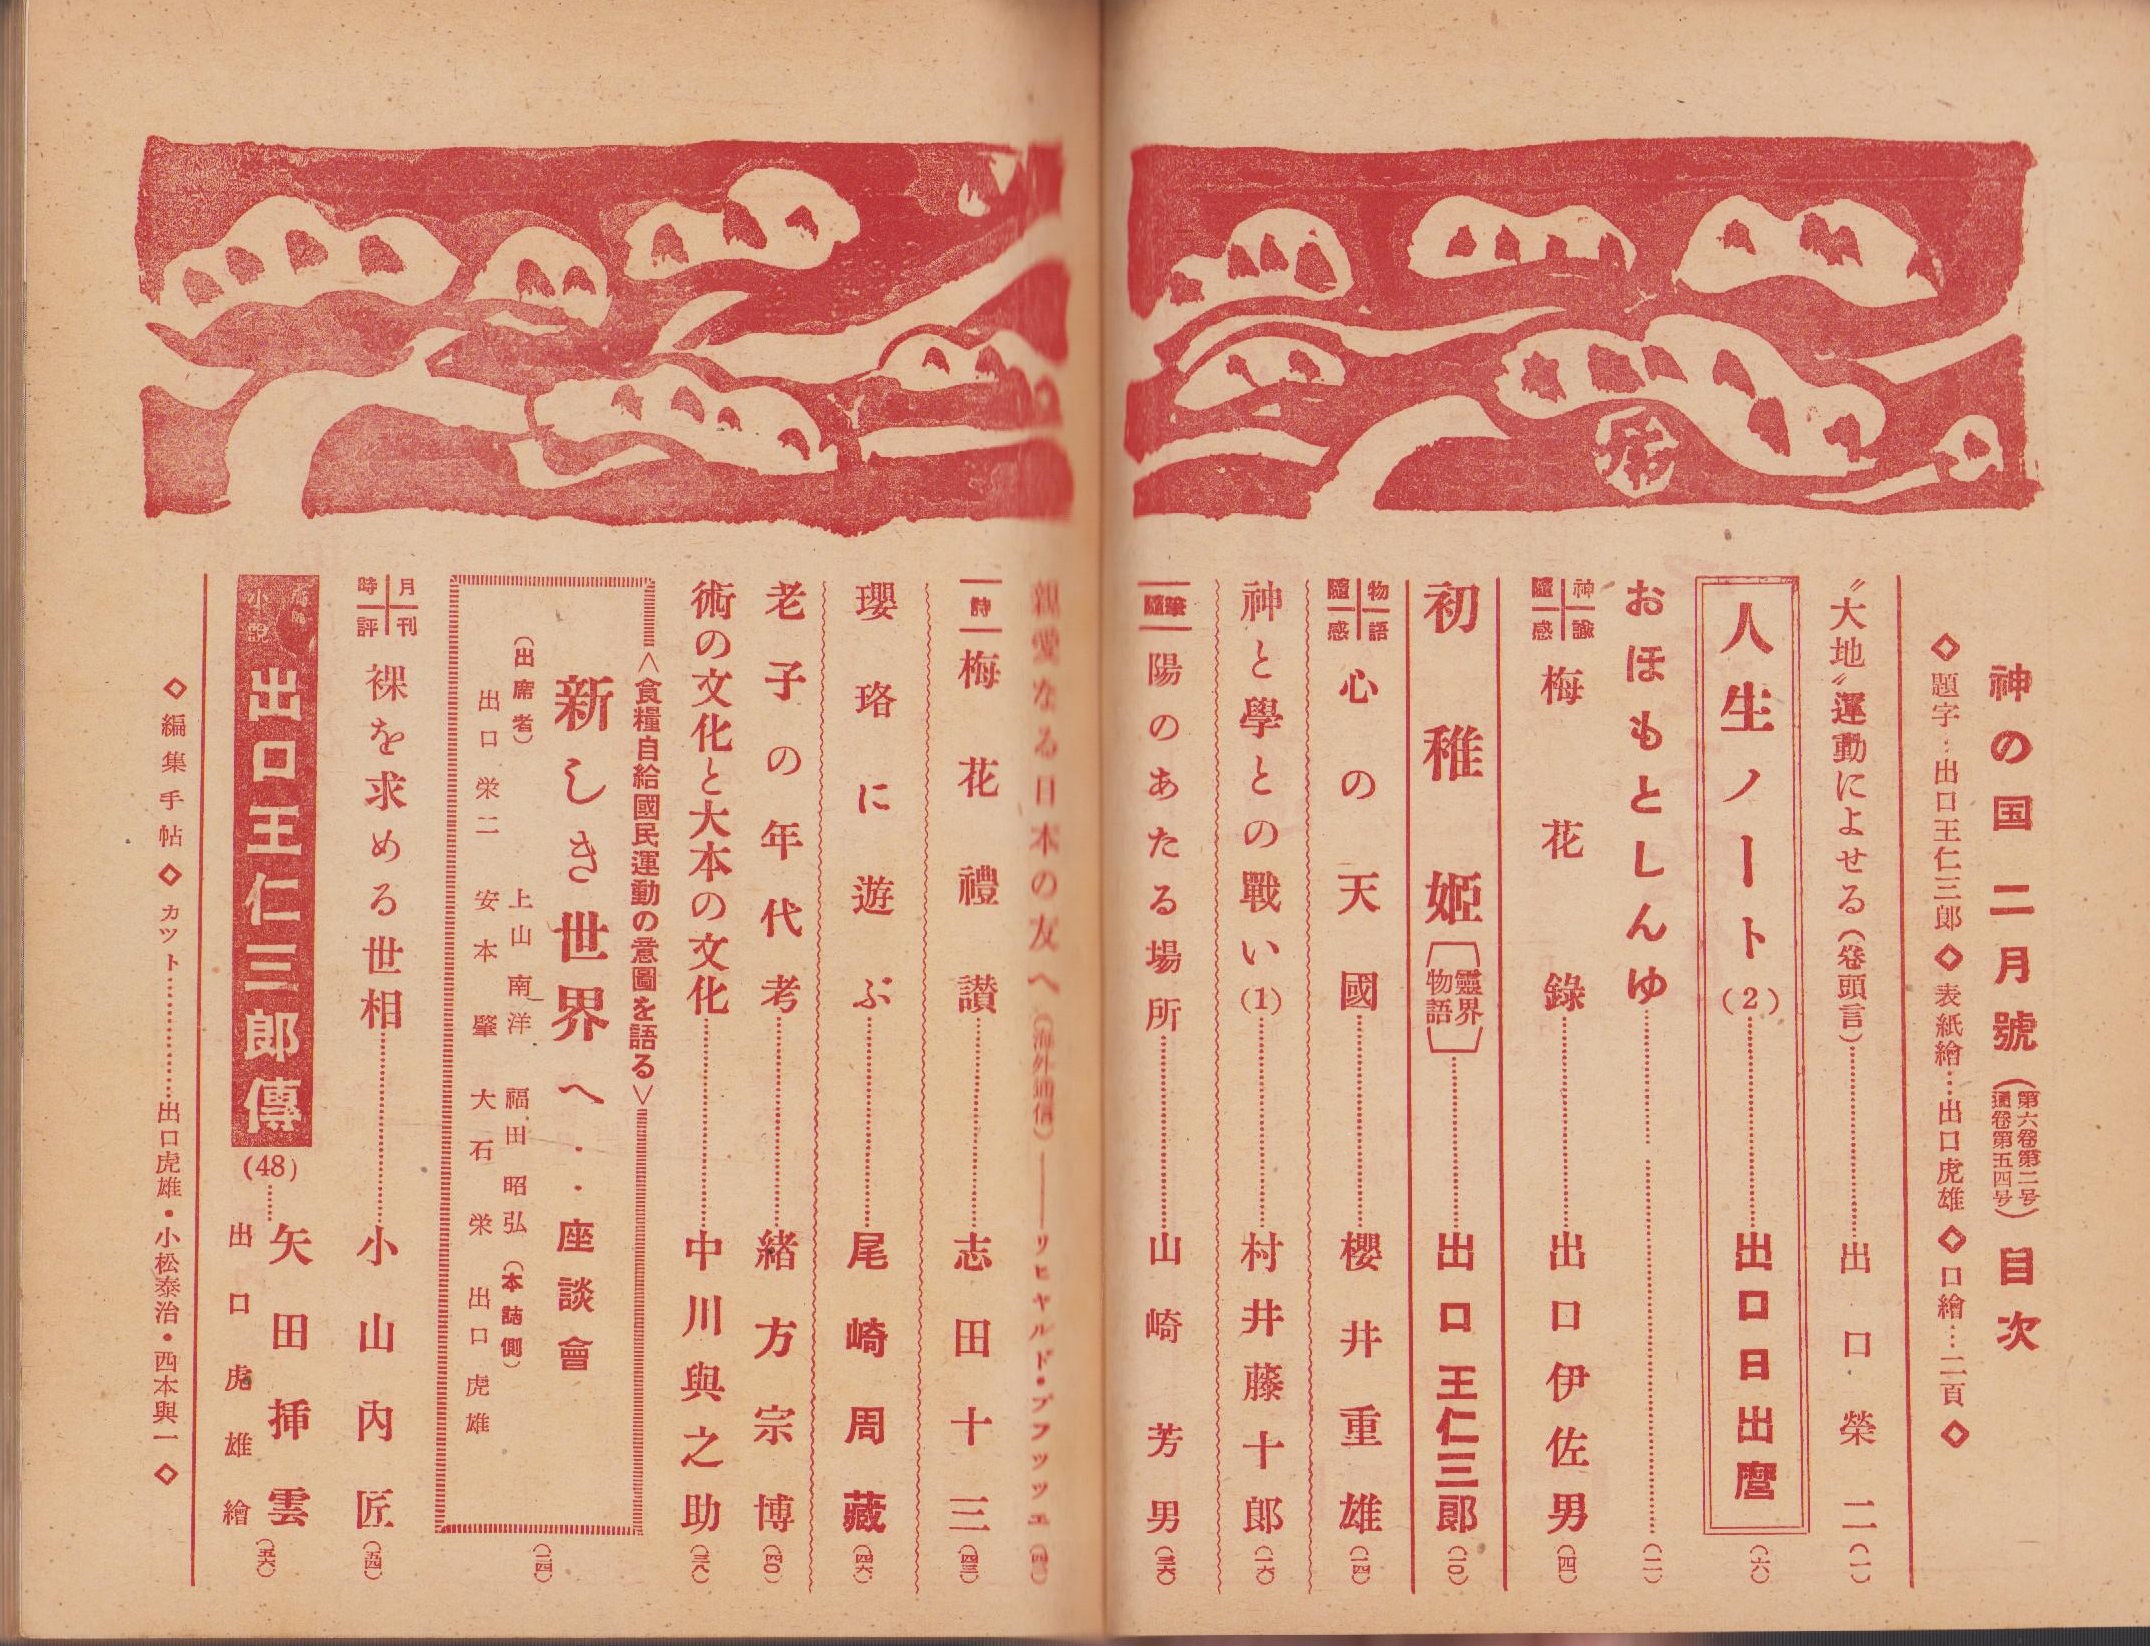 神の国 二月號(第六卷第二号 通卷第五四号)目次
◇題字…出口王仁三郎◇表紙繪…出口虎雄◇口繪…二百◇
〃大地〃運動によせる(卷頭言)…出口榮二(一)
人生ノート(2)…出口日出麿(六)
おほもとしんゆ…(二)
神諭隨感 梅花錄…出口伊佐男(四)
初稚姬〔靈界物語〕…出口王仁三郎(一〇)
物語隨感 心の天國…櫻井重雄(一四)
神と學との戰い(1)…村井藤十郎(一六)
隨筆 陽のあたる場所…山崎芳男(三六)
親愛なる日本の友へ(海外通信)――リヒヤルド・プフッツェ
詩 梅花禮讃…志田十三(四三)
瓔珞に遊ぶ…尾崎周藏(四六)
老子の年代考…緒方宗博(四〇)
術の文化と大本の文化…中川與之助(三八)
<食糧自給國民運動の意圖を語る>
新しき世界へ・・座談會(二四)
(出席者) 上山南洋 福田昭弘 (本誌側)
出口栄二 安本肇 大石栄 出口虎雄
月刊時評 裸を求める世相…小山內匠(五四)
小說 出口王仁三郎傳(48)…矢田挿雲 出口虎雄繪(五六)
◇編集手帖◇カット…出口虎雄・小松泰治・西本興一◇